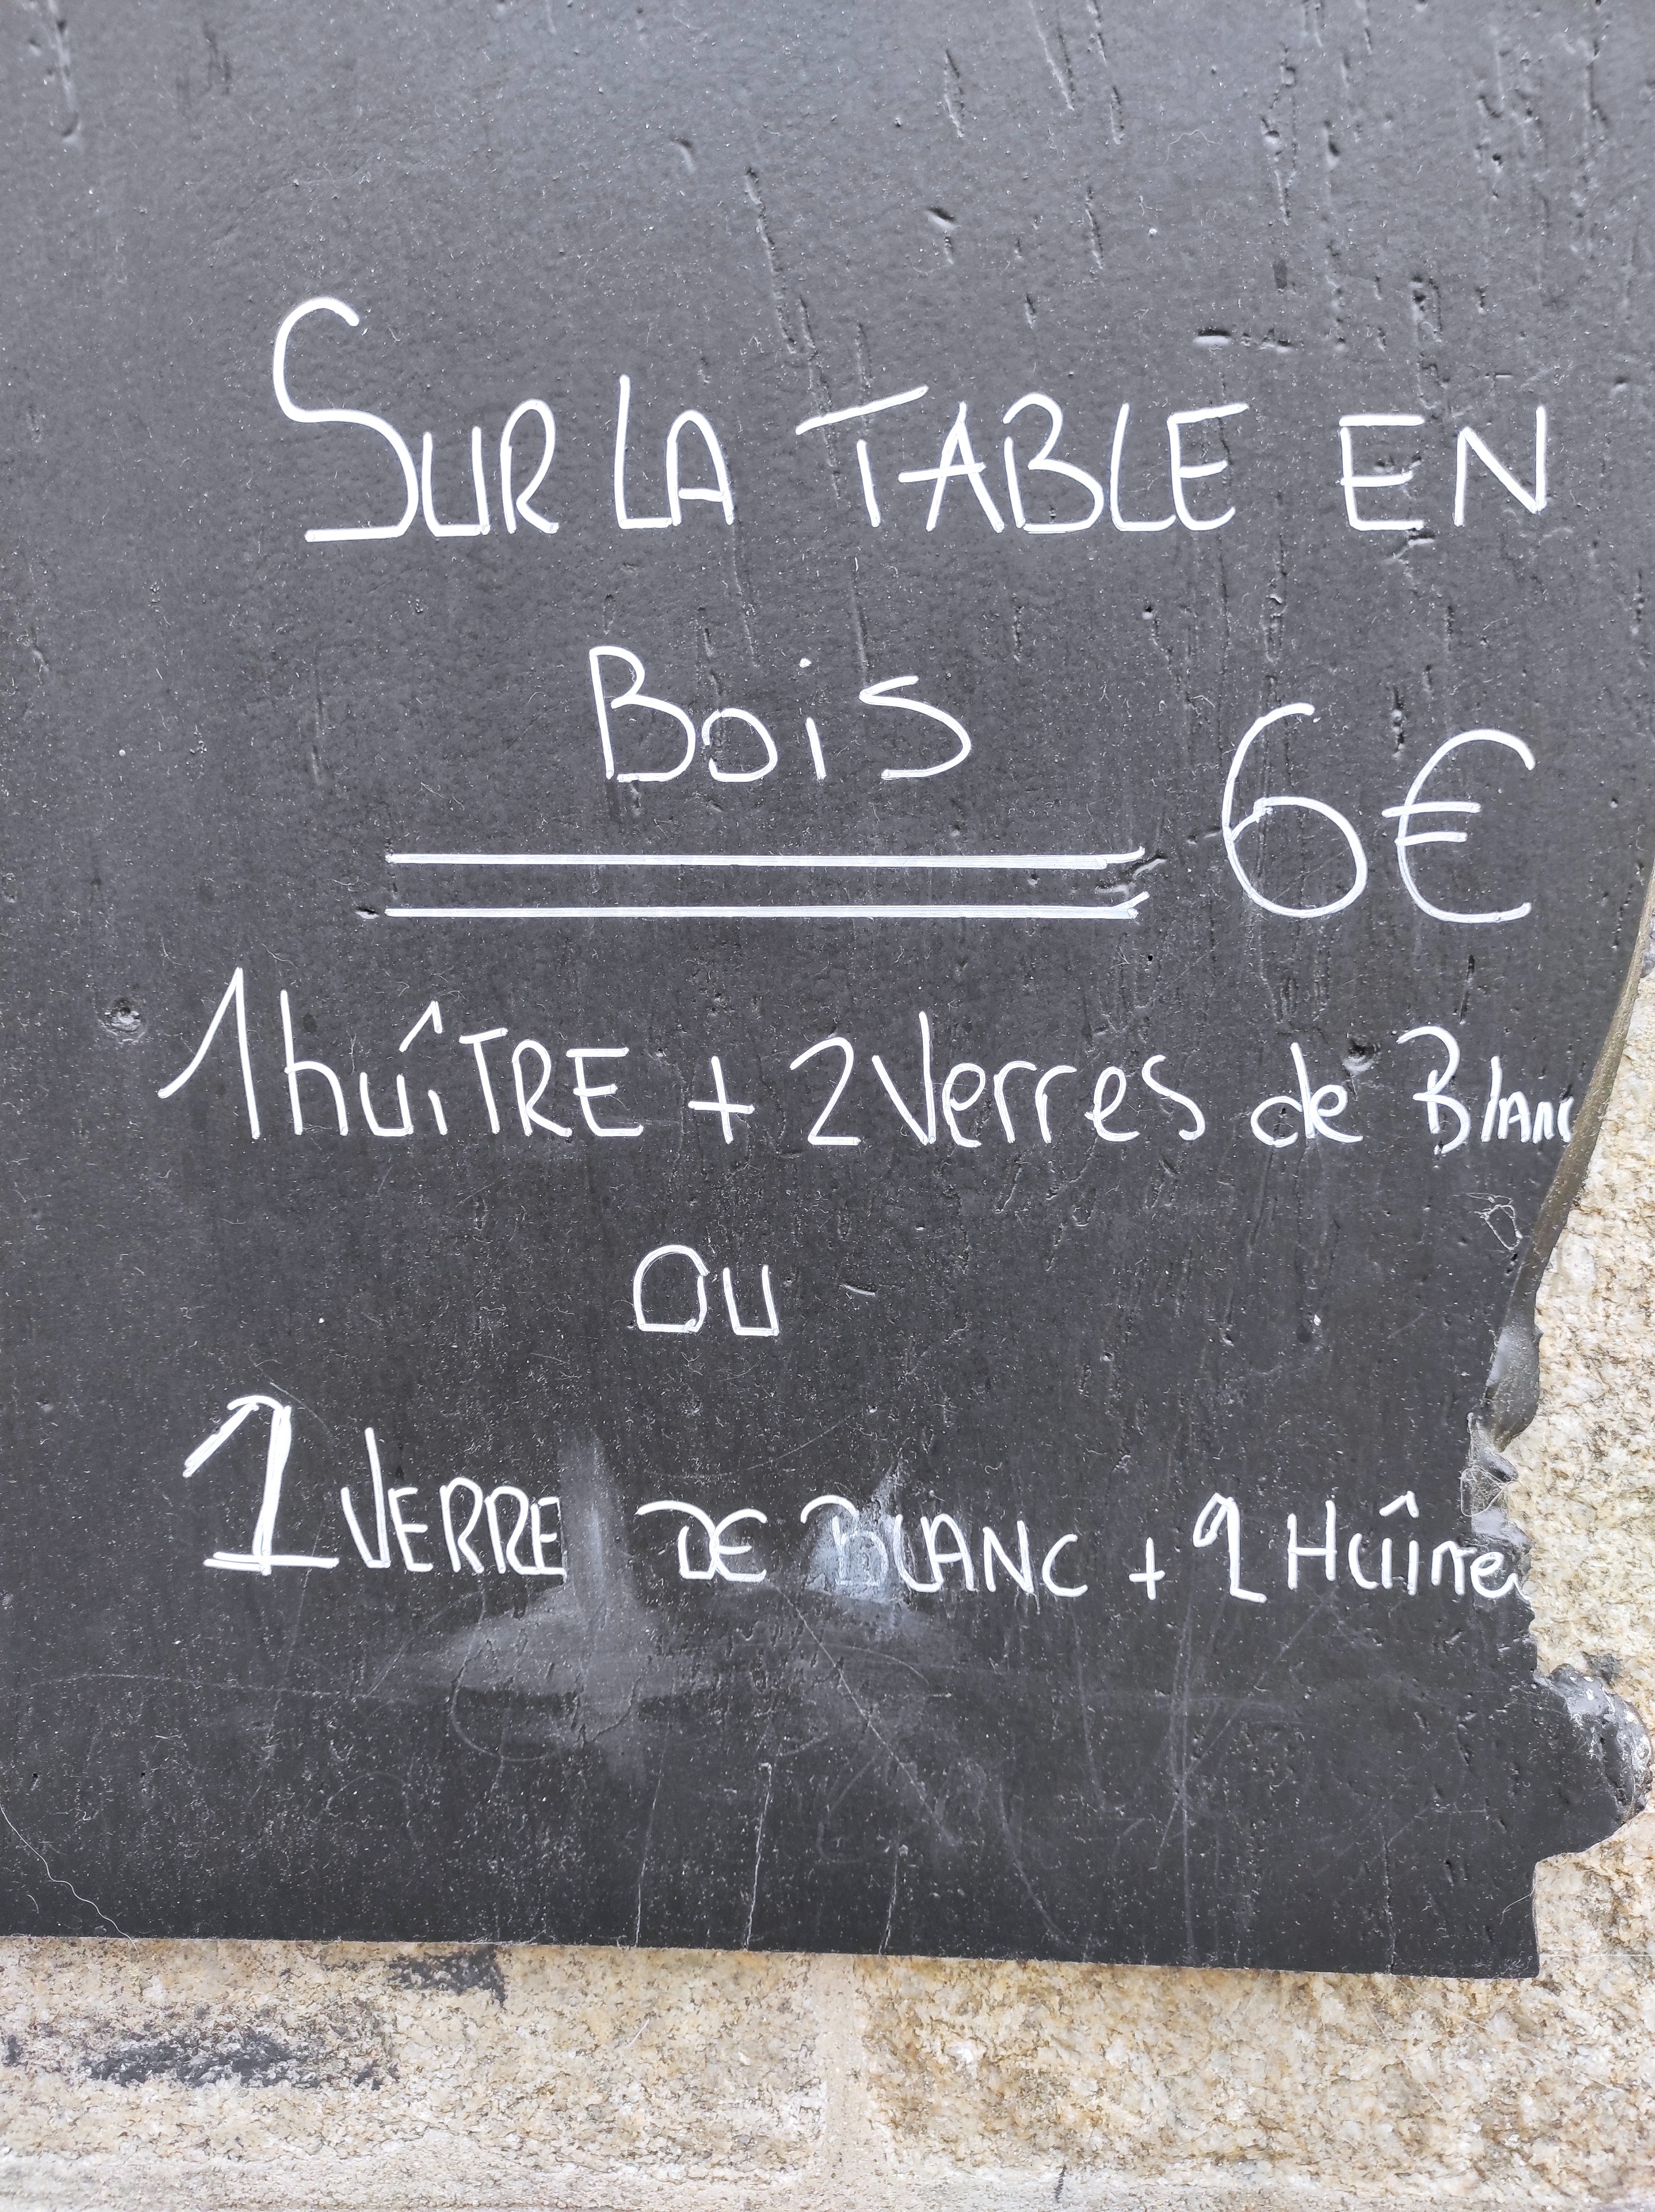 SUR LA TABLE EN
BOiS
6€
1 huîTRE + 2 Verres de Blanc
OU
1 VERRE DE BLANC + 2 Huîtres